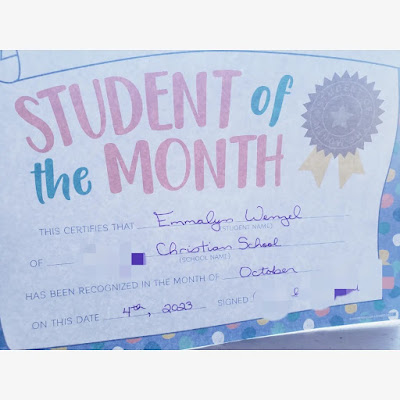 STUDENT of
the MONTH
THIS CERTIFIES THAT Emmalyn Wenzel
(STUDENT NAME)
OF Christian School
(SCHOOL NAME)
HAS BEEN RECOGNIZED IN THE MONTH OF October
ON THIS DATE 4th, 2023 SIGNED